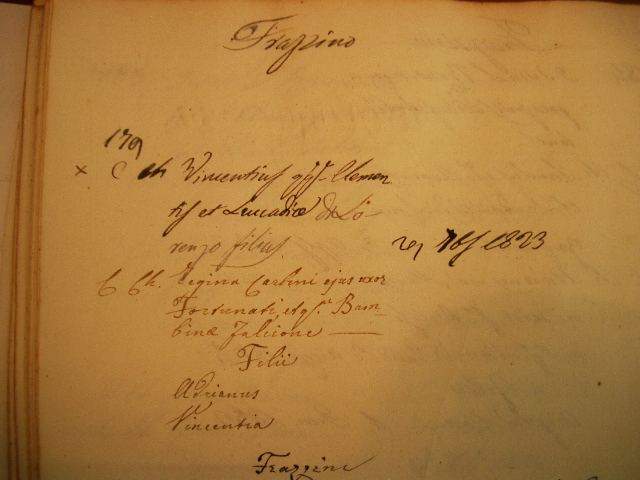 Frazzino
179
x C Ch Vincentius qq. Clemen
tis et Leucadiæ di Lo-
renzo filius
7bj 1823
C Ch. Regina Carlini ejus uxor
Fortunati, et q. Bam
binæ Falcione
Filii
Adrianus
Vincentia
Frazzini